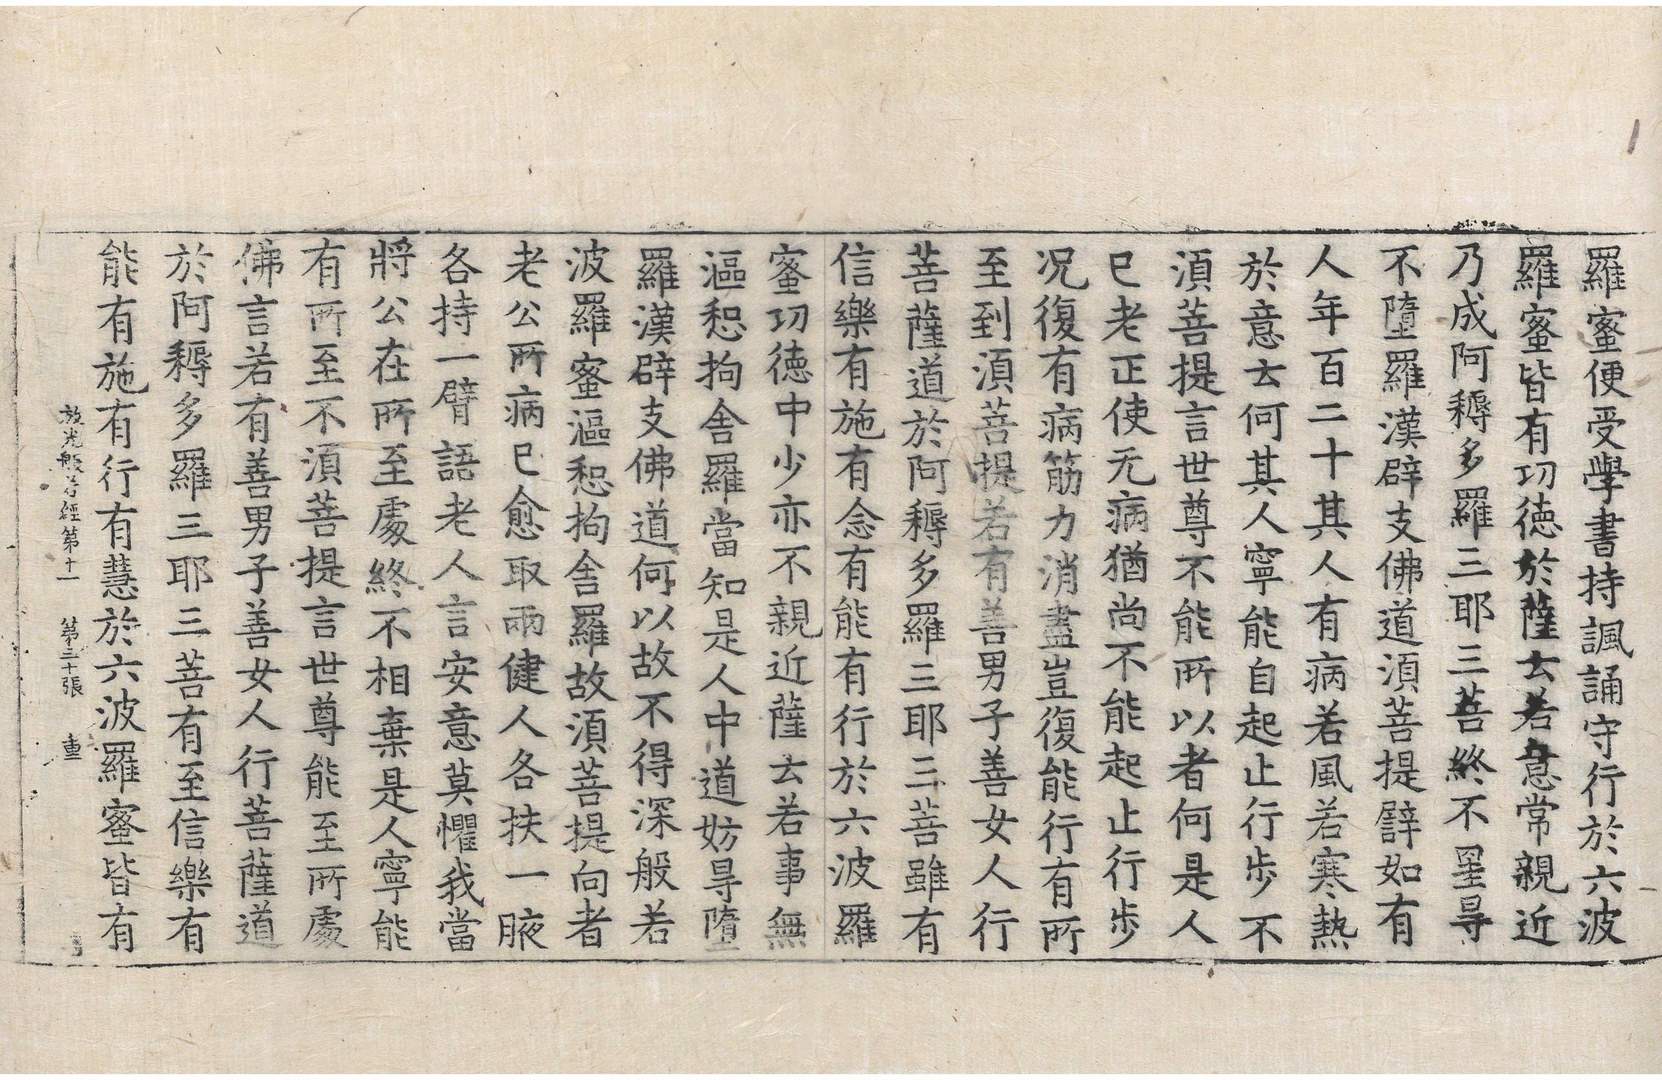 羅蜜便受學書持諷誦守行於六波
羅蜜皆有功德於薩云若意常親近
乃成阿耨多羅三耶三菩終不星㝵
不墮羅漢辟支佛道須菩提譬如有
人年百二十其人有病若風若寒熱
於意云何其人寧能自起止行步不
須菩提言世尊不能所以者何是人
已老正使无病猶尚不能起止行步
况復有病筋力消盡豈復能行有所
至到須菩提若有善男子善女人行
菩薩道於阿耨多羅三耶三菩雖有
信樂有施有念有能有行於六波羅
蜜功德中少亦不親近薩云若事無
漚惒拘舍羅當知是人中道妨㝵墮
羅漢辟支佛道何以故不得深般若
波羅蜜漚惒拘舍羅故須菩提向者
老公所病已愈取兩健人各扶一腋
各持一臂語老人言安意莫懼我當
將公在所至處終不相棄是人寧能
有所至不須菩提言世尊能至所處
佛言若有善男子善女人行菩薩道
於阿耨多羅三耶三菩有至信樂有
能有施有行有慧於六波羅蜜皆有
放光般若經第十一 第三十張 重